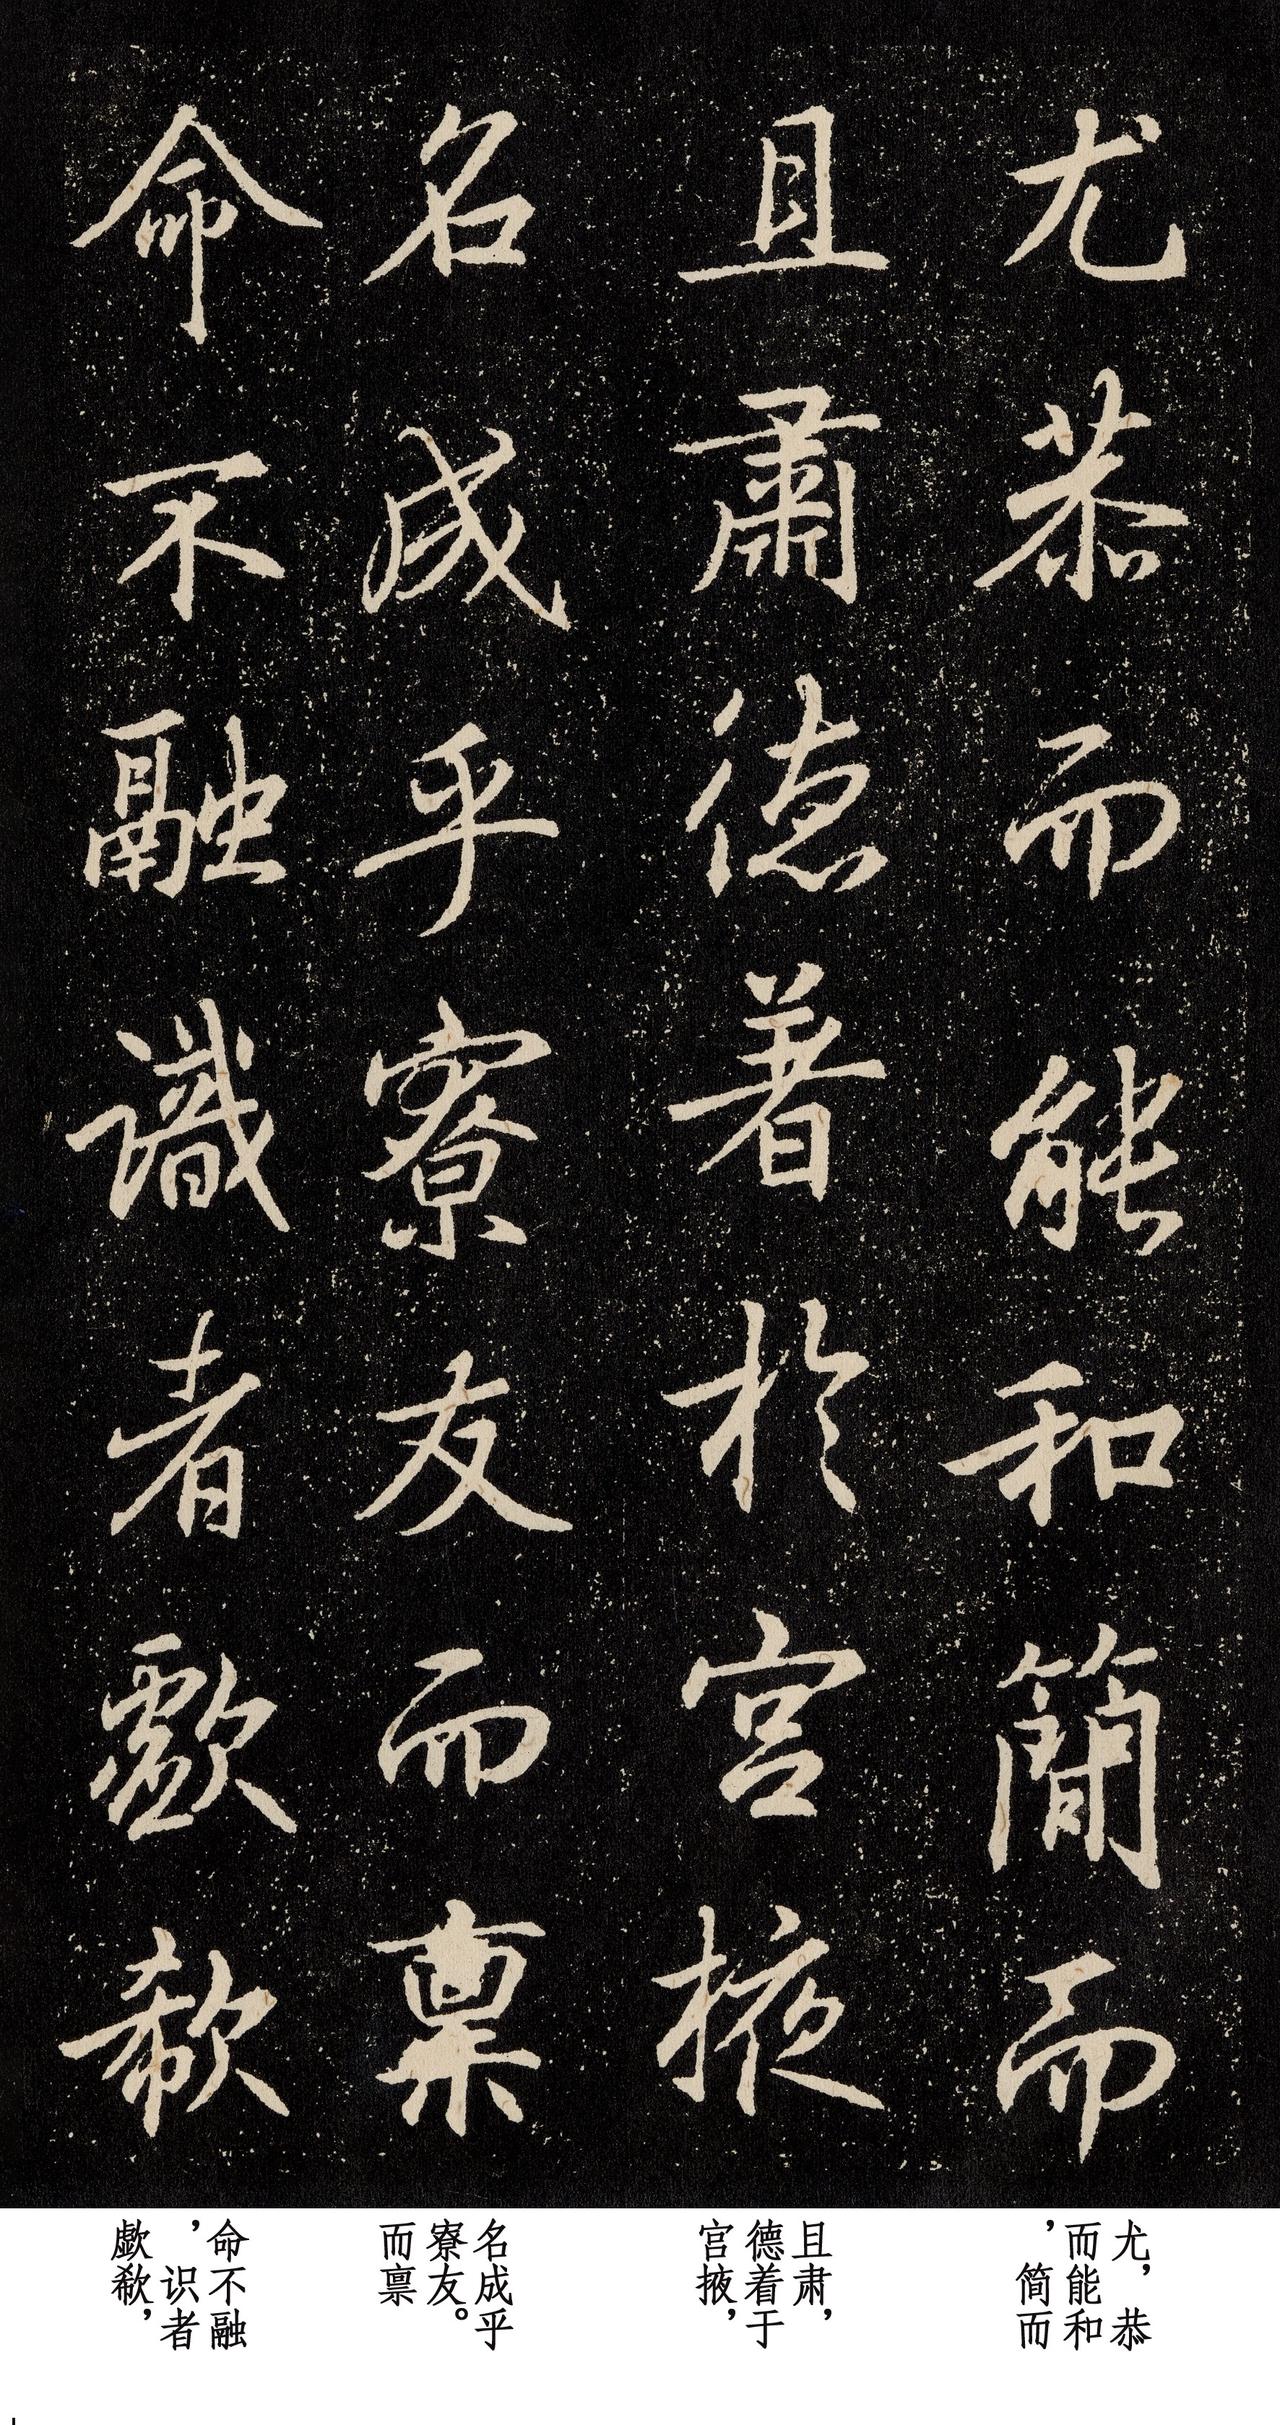 尤恭而能和簡而
且肅德著於宫掖
名成乎寮友而稟
命不融識者歔欷
尤，恭
而能和
，简而
且肃，
德着于
宫掖，
名成乎
寮友。
而禀
命不融
，识者
歔欷，